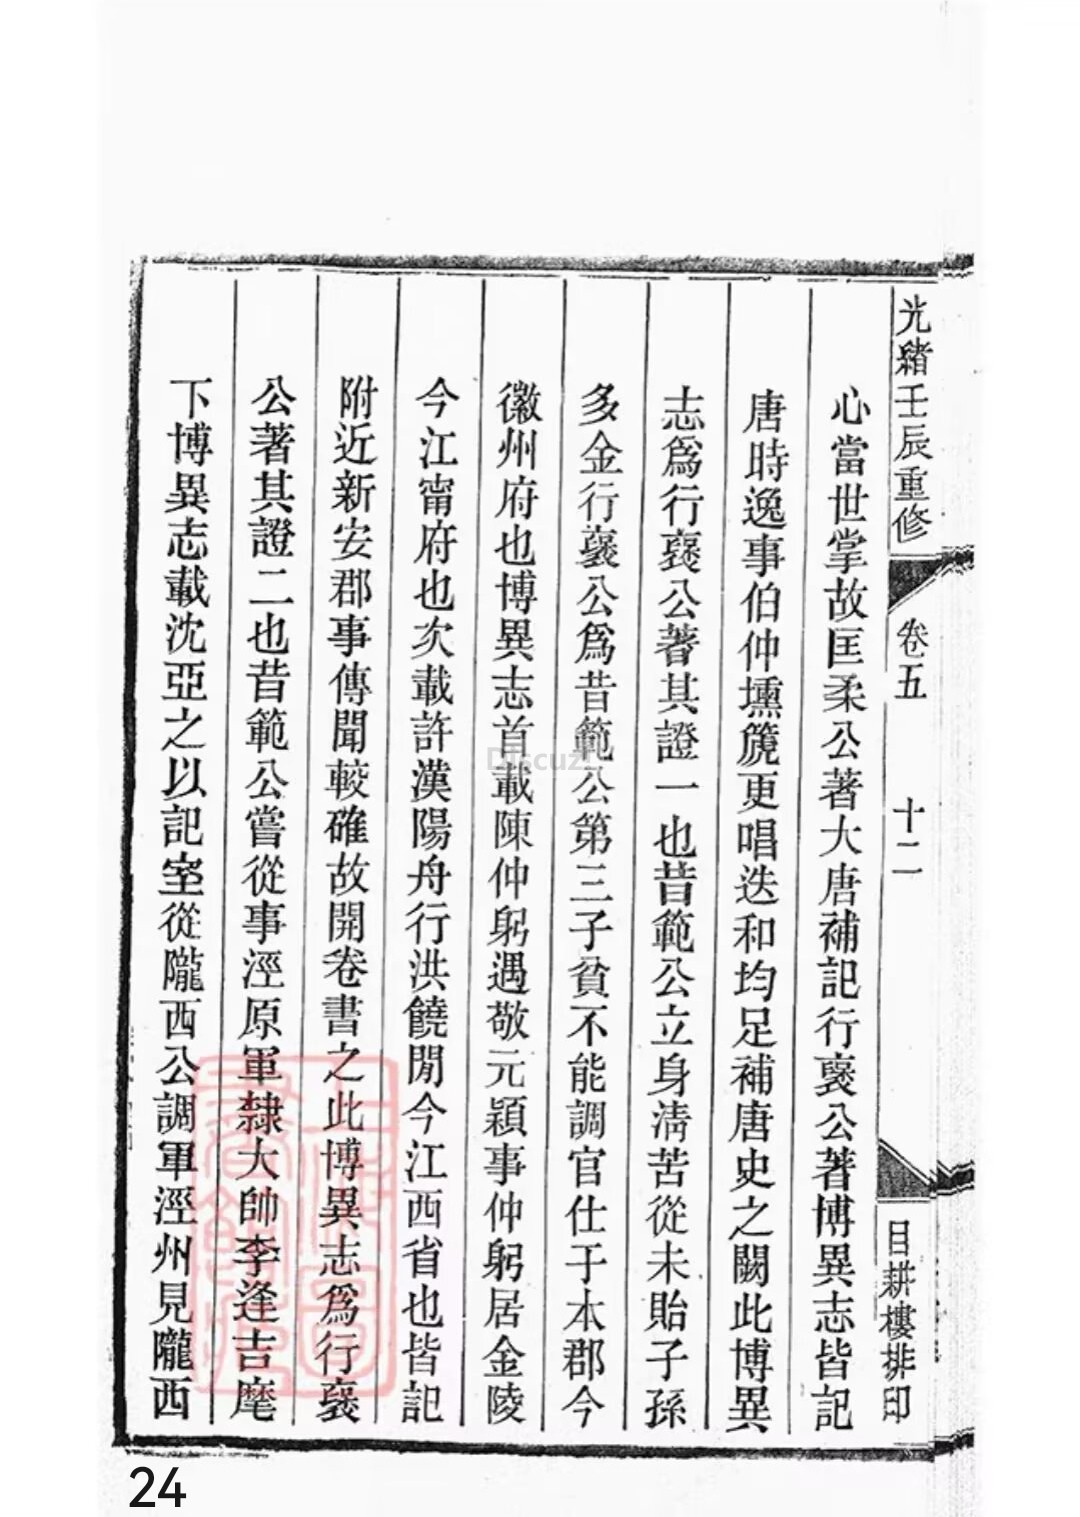 光緒壬辰重修
卷五
十二
目耕樓排印
心當世掌故匡柔公著大唐補記行褎公著博異志皆記
唐時逸事伯仲壎篪更唱迭和均足補唐史之闕此博異
志爲行褎公著其證一也昔範公立身清苦從未貽子孫
多金行褎公爲昔範公第三子貧不能調官仕于本郡今
徽州府也博異志首載陳仲躬遇敬元潁事仲躬居金陵
今江甯府也次載許漢陽舟行洪饒閒今江西省也皆記
附近新安郡事傳聞較確故開卷書之此博異志爲行褎
公著其證二也昔範公嘗從事涇原軍隸大帥李逢吉麾
下博異志載沈亞之以記室從隴西公調軍涇州見隴西
Discuz!
24